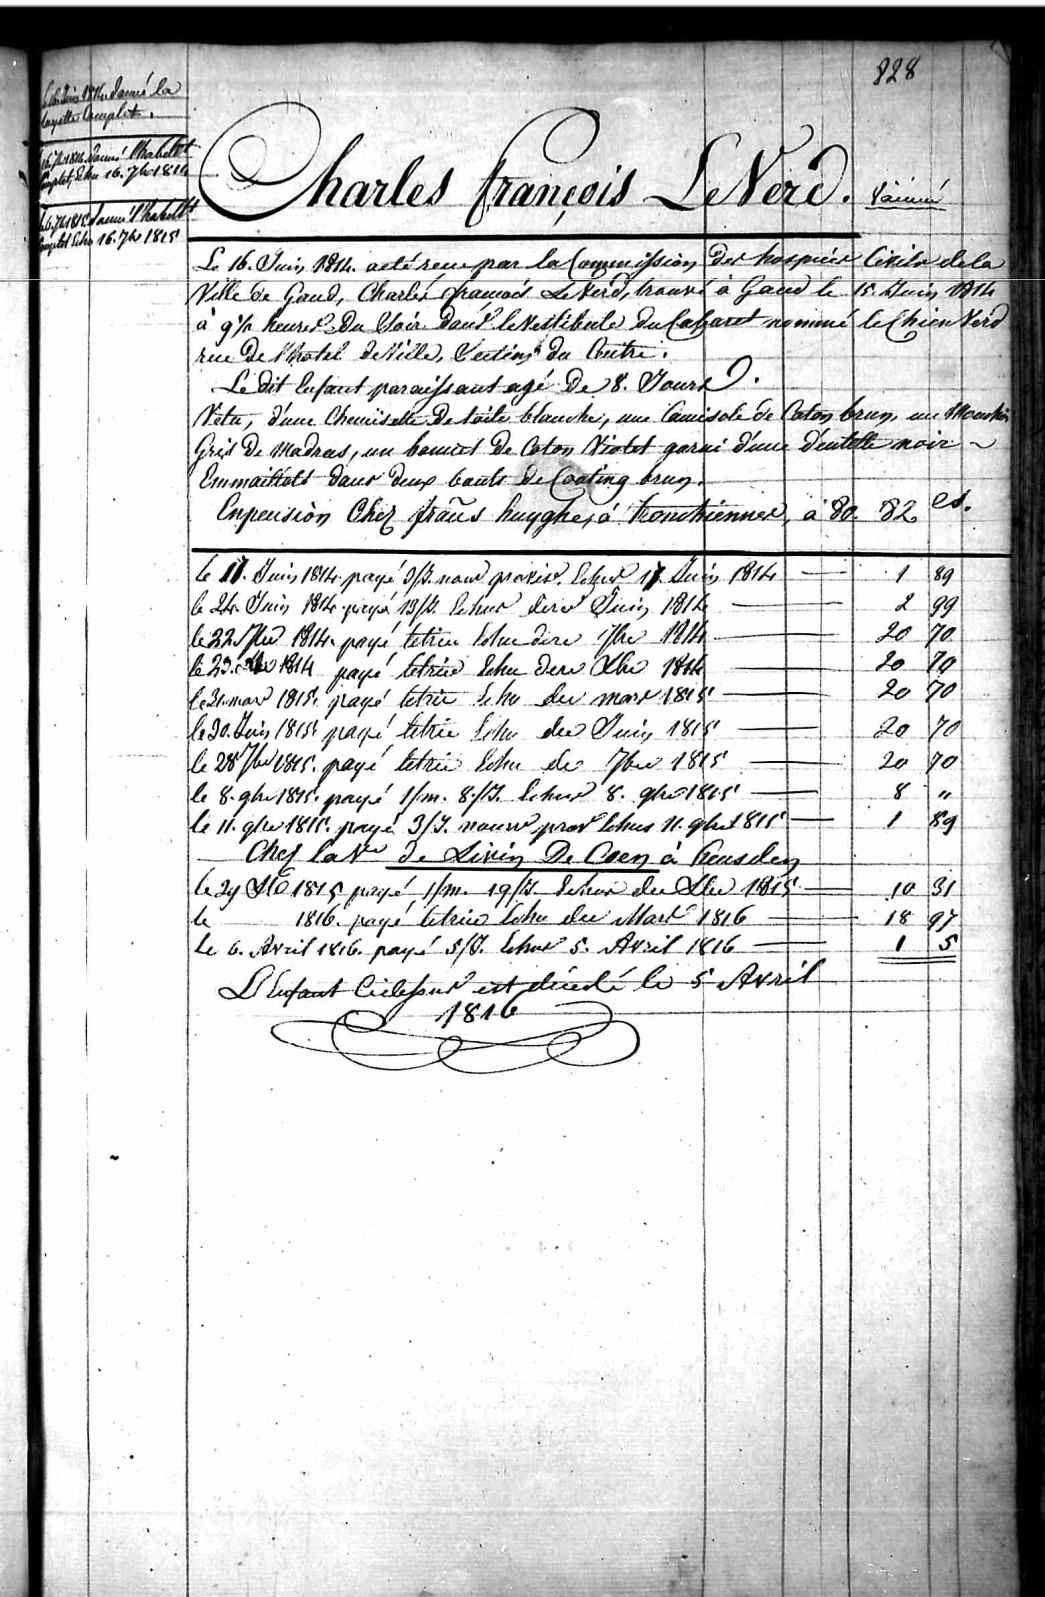 828
le 16 Juin 1814. donné la
layette Complet.
16. 7bre 1814. donné l'habillt
Complet, Echu 16. 7bre 1814
le 16. 7bre 1815. donné l'habillt
Complet Echu 16. 7bre 1815
Charles françois Le Verd. Vacciné
Le 16. Juin 1814. a été recu par la Commission des hospices Civils de la
Ville de Gand, Charles françois Le Verd, trouvé à Gand le 15. Juin 1814
à 9½ heures Du Soir Dans le Vestibule Du Cabaret nommé le Chien Verd
rue De l'hotel de Ville, Section du Centre.
Le dit Enfant paraissant agé De 8. Jours.
Vetu, d'une Chemisette De toile blanche, une Camisole de Coton brun, un Mouchoir
Gris De Madras, un bonnet De Coton Violet garni d'une dentelle noir
Emmaillotté dans deux bouts de Coating brun.
En pension Chez frans huyghe, à tronchiennes, à 80. 82. es.
le 17. Juin 1814. payé 3/J. nour provis. Echus 17. Juin 1814 1 89
le 24. Juin 1814. payé 13/J. Echus dere Juin 1814 2 99
le 22 7bre 1814. payé tetrie Echu dere 7bre 1814 20 70
le 23. Xbre 1814 payé tetrie Echu dere Xbre 1814 20 70
le 31. mars 1815. payé tetrie Echu der mars 1815 20 70
le 30. Juin 1815 payé tetrie Echu der Juin 1815 20 70
le 28 7bre 1815. payé tetrie Echu de 7bre 1815 20 70
le 8. 9bre 1815. payé 1/m. 8/J. Echus 8. 9bre 1815 8 "
le 11. 9bre 1815. payé 3/J. nour prov Echus 11. 9bre 1815 1 89
Chez la Ve de Livin De Coen à heusden
le 29 Xbre 1815 payé 1/m. 19/J. Echus der Xbre 1815 10 31
le 1816. payé tetrie Echu der Mars 1816 18 97
le 6. Avril 1816. payé 5/J. Echus 5. Avril 1816 1 5
L'Enfant Cidessus est décédé le 5 Avril
1816